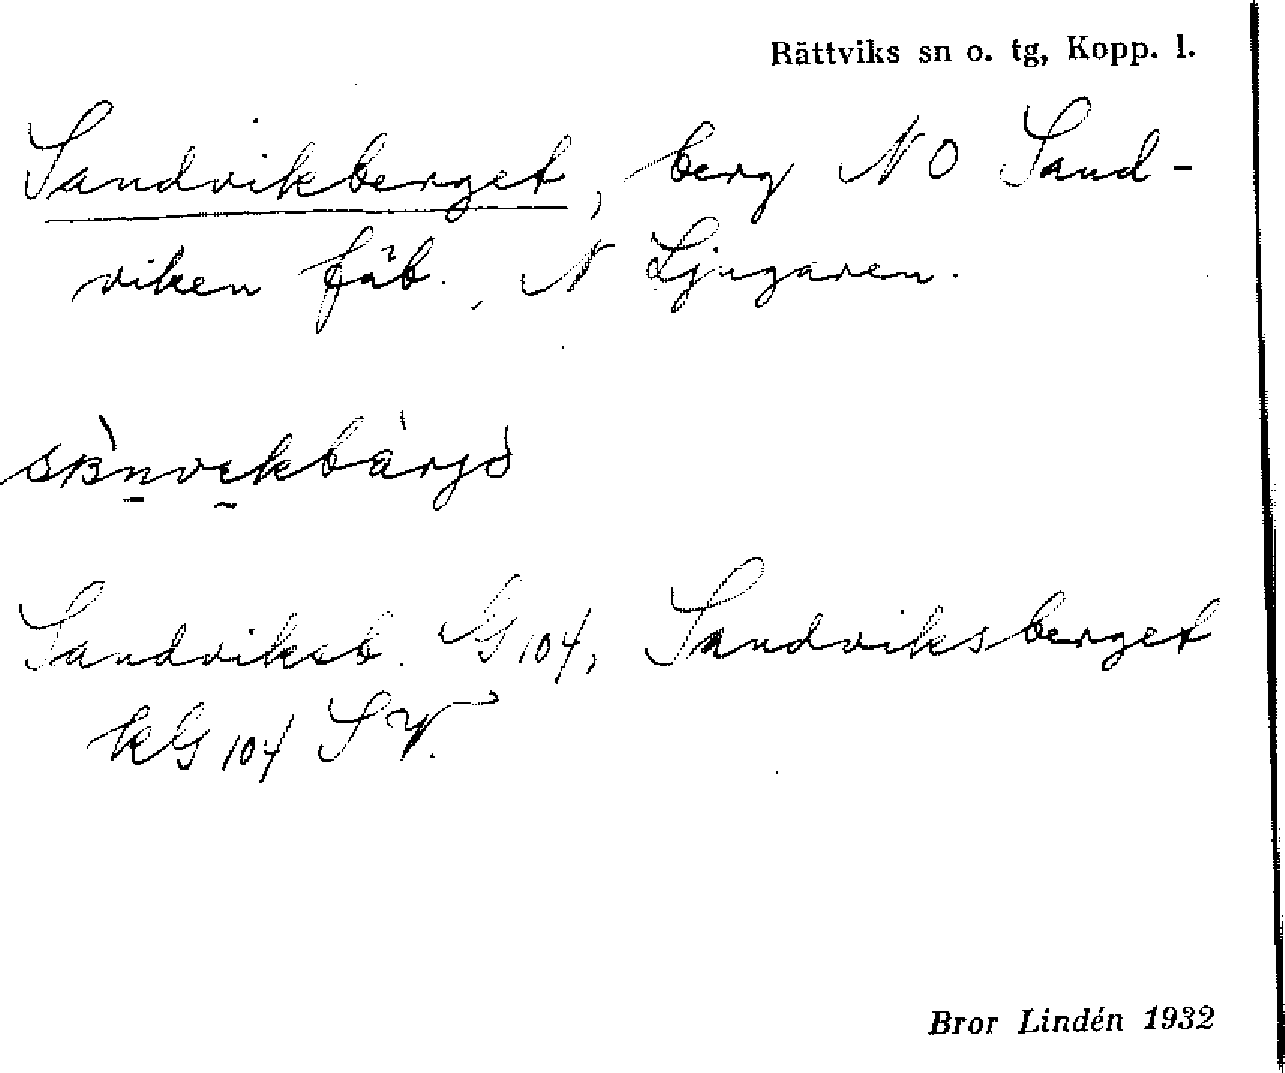 Rättviks sn o. tg, Kopp. l.
Sandvikberget, berg NO Sand-
viken fäb., N Ljugaren.
Sandviksb. G 104, Sandviksberget
kG 104 SV.
Bror Lindén 1932